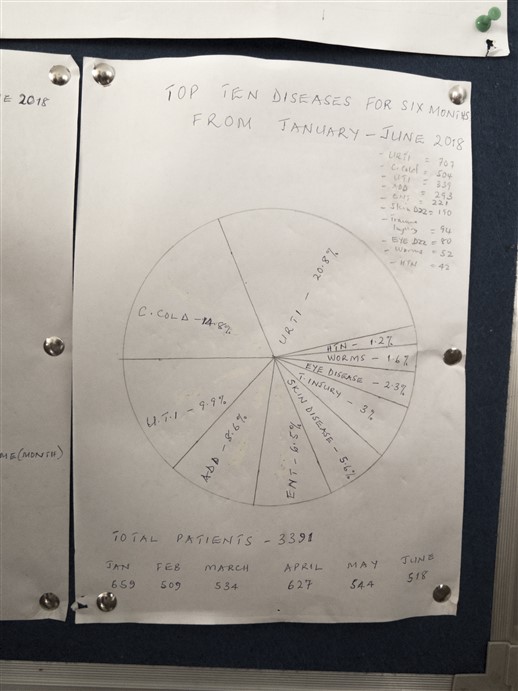 E 2018
TOP TEN DISEASES FOR SIX MONTHS
FROM JANUARY - JUNE 2018
- URTI = 707
- C. Cold = 504
- UTI = 339
- ADD = 293
- ENT = 221
- Skin Dzz = 190
- Trauma
Injury = 94
- EYE Dzz = 80
- Worms = 52
- HTN = 42
URTI - 20.8%
C. COLD - 14.8%
HTN - 1.2%
WORMS - 1.6%
EYE DISEASE - 2.3%
T. INJURY - 3%
SKIN DISEASE - 5.6%
U.T.I - 9.9%
ADD - 8.6%
ENT - 6.5%
ME (MONTH)
TOTAL PATIENTS - 3391
JAN FEB MARCH APRIL MAY JUNE
659 509 534 627 544 518